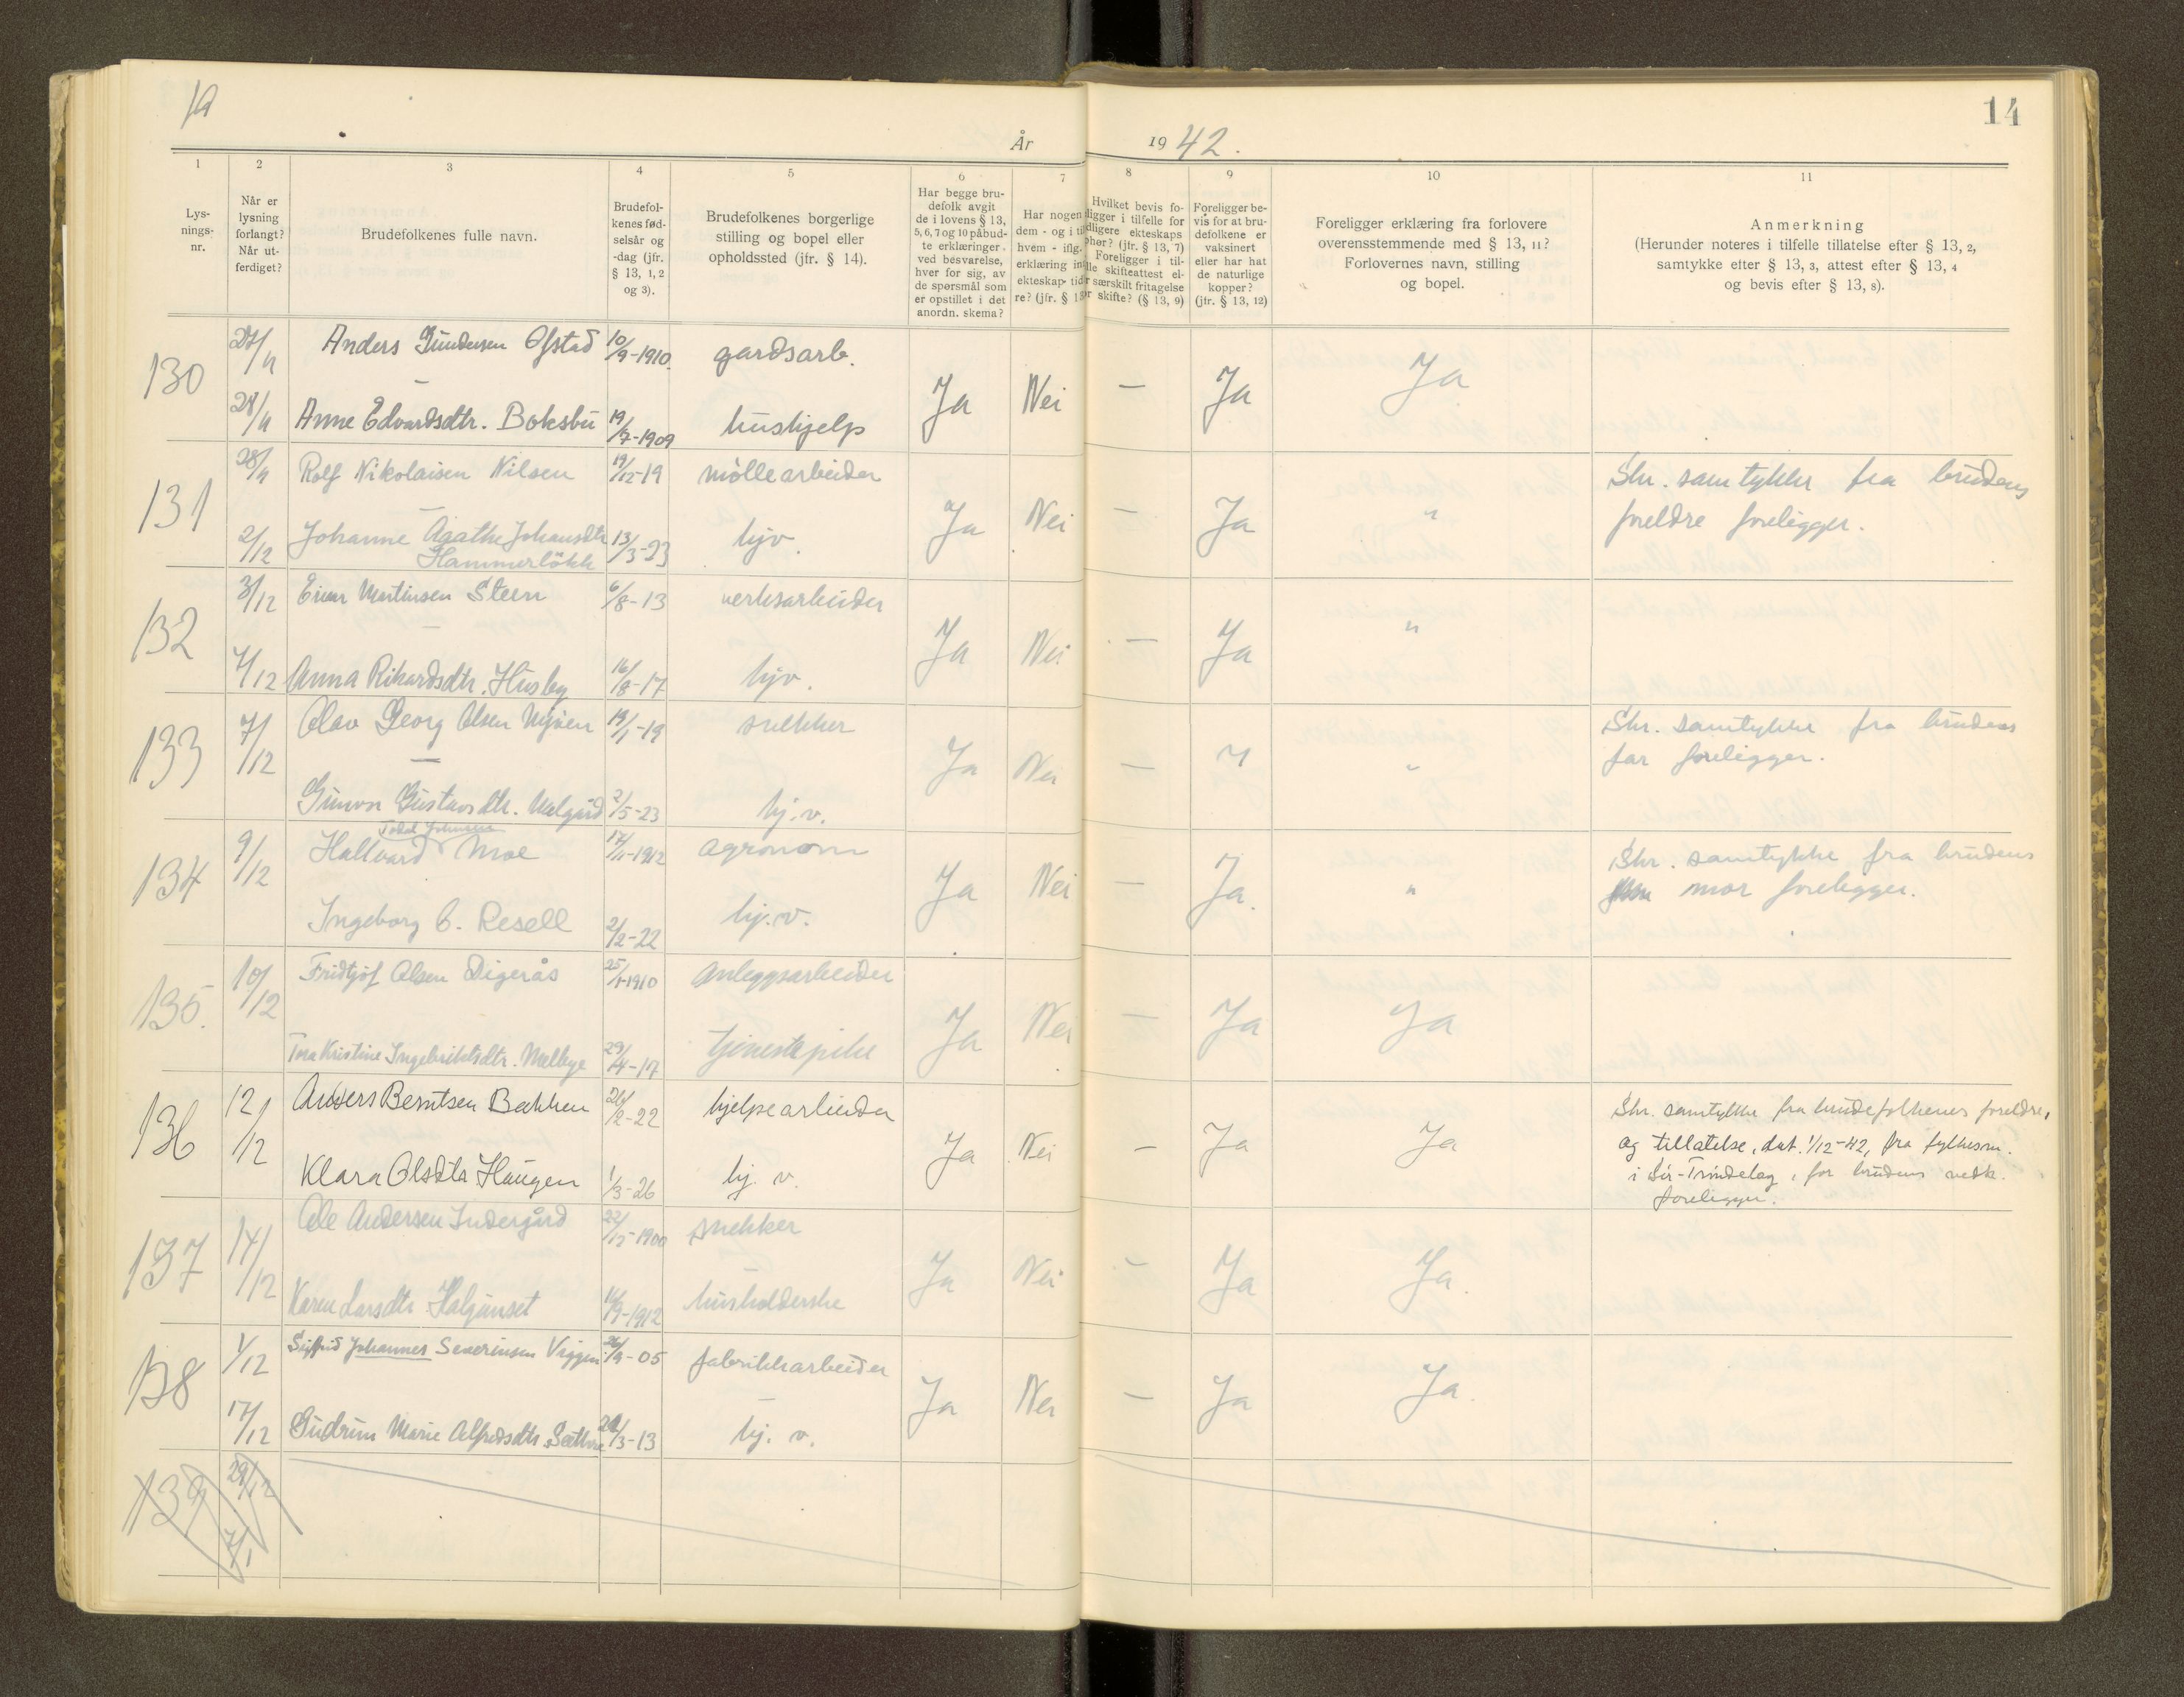 14
År 1942.
1 2 3 4 5 6 7 8 9 10 11
Lys-
nings-
nr.
Når er
lysning
forlangt?
Når ut-
ferdiget?
Brudefolkenes fulle navn.
Brudefol-
kenes fød-
selsår og
-dag (jfr.
§ 13, 1, 2
og 3).
Brudefolkenes borgerlige
stilling og bopel eller
opholdssted (jfr. § 14).
Har begge bru-
defolk avgit
de i lovens § 13,
5, 6, 7 og 10 påbud-
te erklæringer
ved besvarelse,
hver for sig, av
de spørsmål som
er opstillet i det
anordn. skema?
Har nogen
dem - og i til
hvem - iflg.
erklæring in
ekteskap tid
re? (jfr. § 1
Hvilket bevis fo-
ligger i tilfelle for
dligere ekteskaps
phør? (jfr. § 13, 7)
Foreligger i til-
lle skifteattest el-
r særskilt fritagelse
or skifte? (§ 13, 9)
Foreligger be-
vis for at bru-
defolkene er
vaksinert
eller har hat
de naturlige
kopper?
(jfr. § 13, 12)
Foreligger erklæring fra forlovere
overensstemmende med § 13, 11?
Forlovernes navn, stilling
og bopel.
Anmerkning
(Herunder noteres i tilfelle tillatelse efter § 13, 2,
samtykke efter § 13, 3, attest efter § 13, 4
og bevis efter § 13, 8).
130 27/11 Anders Gundersen Ofstad 10/9-1910. gardsarb.
Ja Nei — Ja Ja
28/11 Anne Edvardsdtr. Boksbu 19/7-1909 hushjelp
131 28/11 Rolf Nikolaisen Nilsen 19/12-19 møllearbeider
Ja Nei — Ja " Skr. samtykke fra brudens
foreldre foreligger.
2/12 Johanne Agathe Johansdtr 13/3-23 hjv.
Hammerløkk
132 3/12 Einar Martinsen Steen 6/8-13 verksarbeider
Ja Nei — Ja "
7/12 Anna Rikardsdtr. Husby 16/8-17 hjv.
133 7/12 Olav Georg Olsen 19/1-19 snekker
Ja Nei — " " Skr. samtykke fra brudens
far foreligger.
Gunvor Gustavsdtr. 2/5-23 hj.v.
134 9/12 Hallvard Moe 17/11-1912 agronom
Ja Nei — Ja. " Skr. samtykke fra brudens
mor foreligger.
Ingeborg C. Resell 2/2-22 hj.v.
135. 10/12 Fridtjof Olsen Digerås 25/1-1910 anleggsarbeider
Ja Nei — Ja Ja
Tora Kristine Ingebriktsdtr. Melbye 29/4-17 tjenestepike
136 12/12 Anders Berntsen Bakken 26/2-22 hjelpearbeider
Ja Nei — Ja Ja Skr. samtykke fra brudefolkenes foreldre,
og tillatelse, dat. 1/12-42, fra fylkesm.
i Sør-Trøndelag, for brudens vedk.
foreligger.
Klara Olsdtr Haugen 1/3-26 hj. v.
137 14/12 Ole Andersen Indergård 22/12-1900 snekker
Ja Nei — Ja Ja.
Karen Larsdtr. Haljunset 16/9-1912 husholderske
138 1/12 Sigfrid Johannes Severinsen Viggen 26/9-05 fabrikkarbeider
Ja Nei — Ja Ja.
17/12 Gudrun Marie Alfredsdtr. 20/3-13 hj. v.
139 29/12
7/1